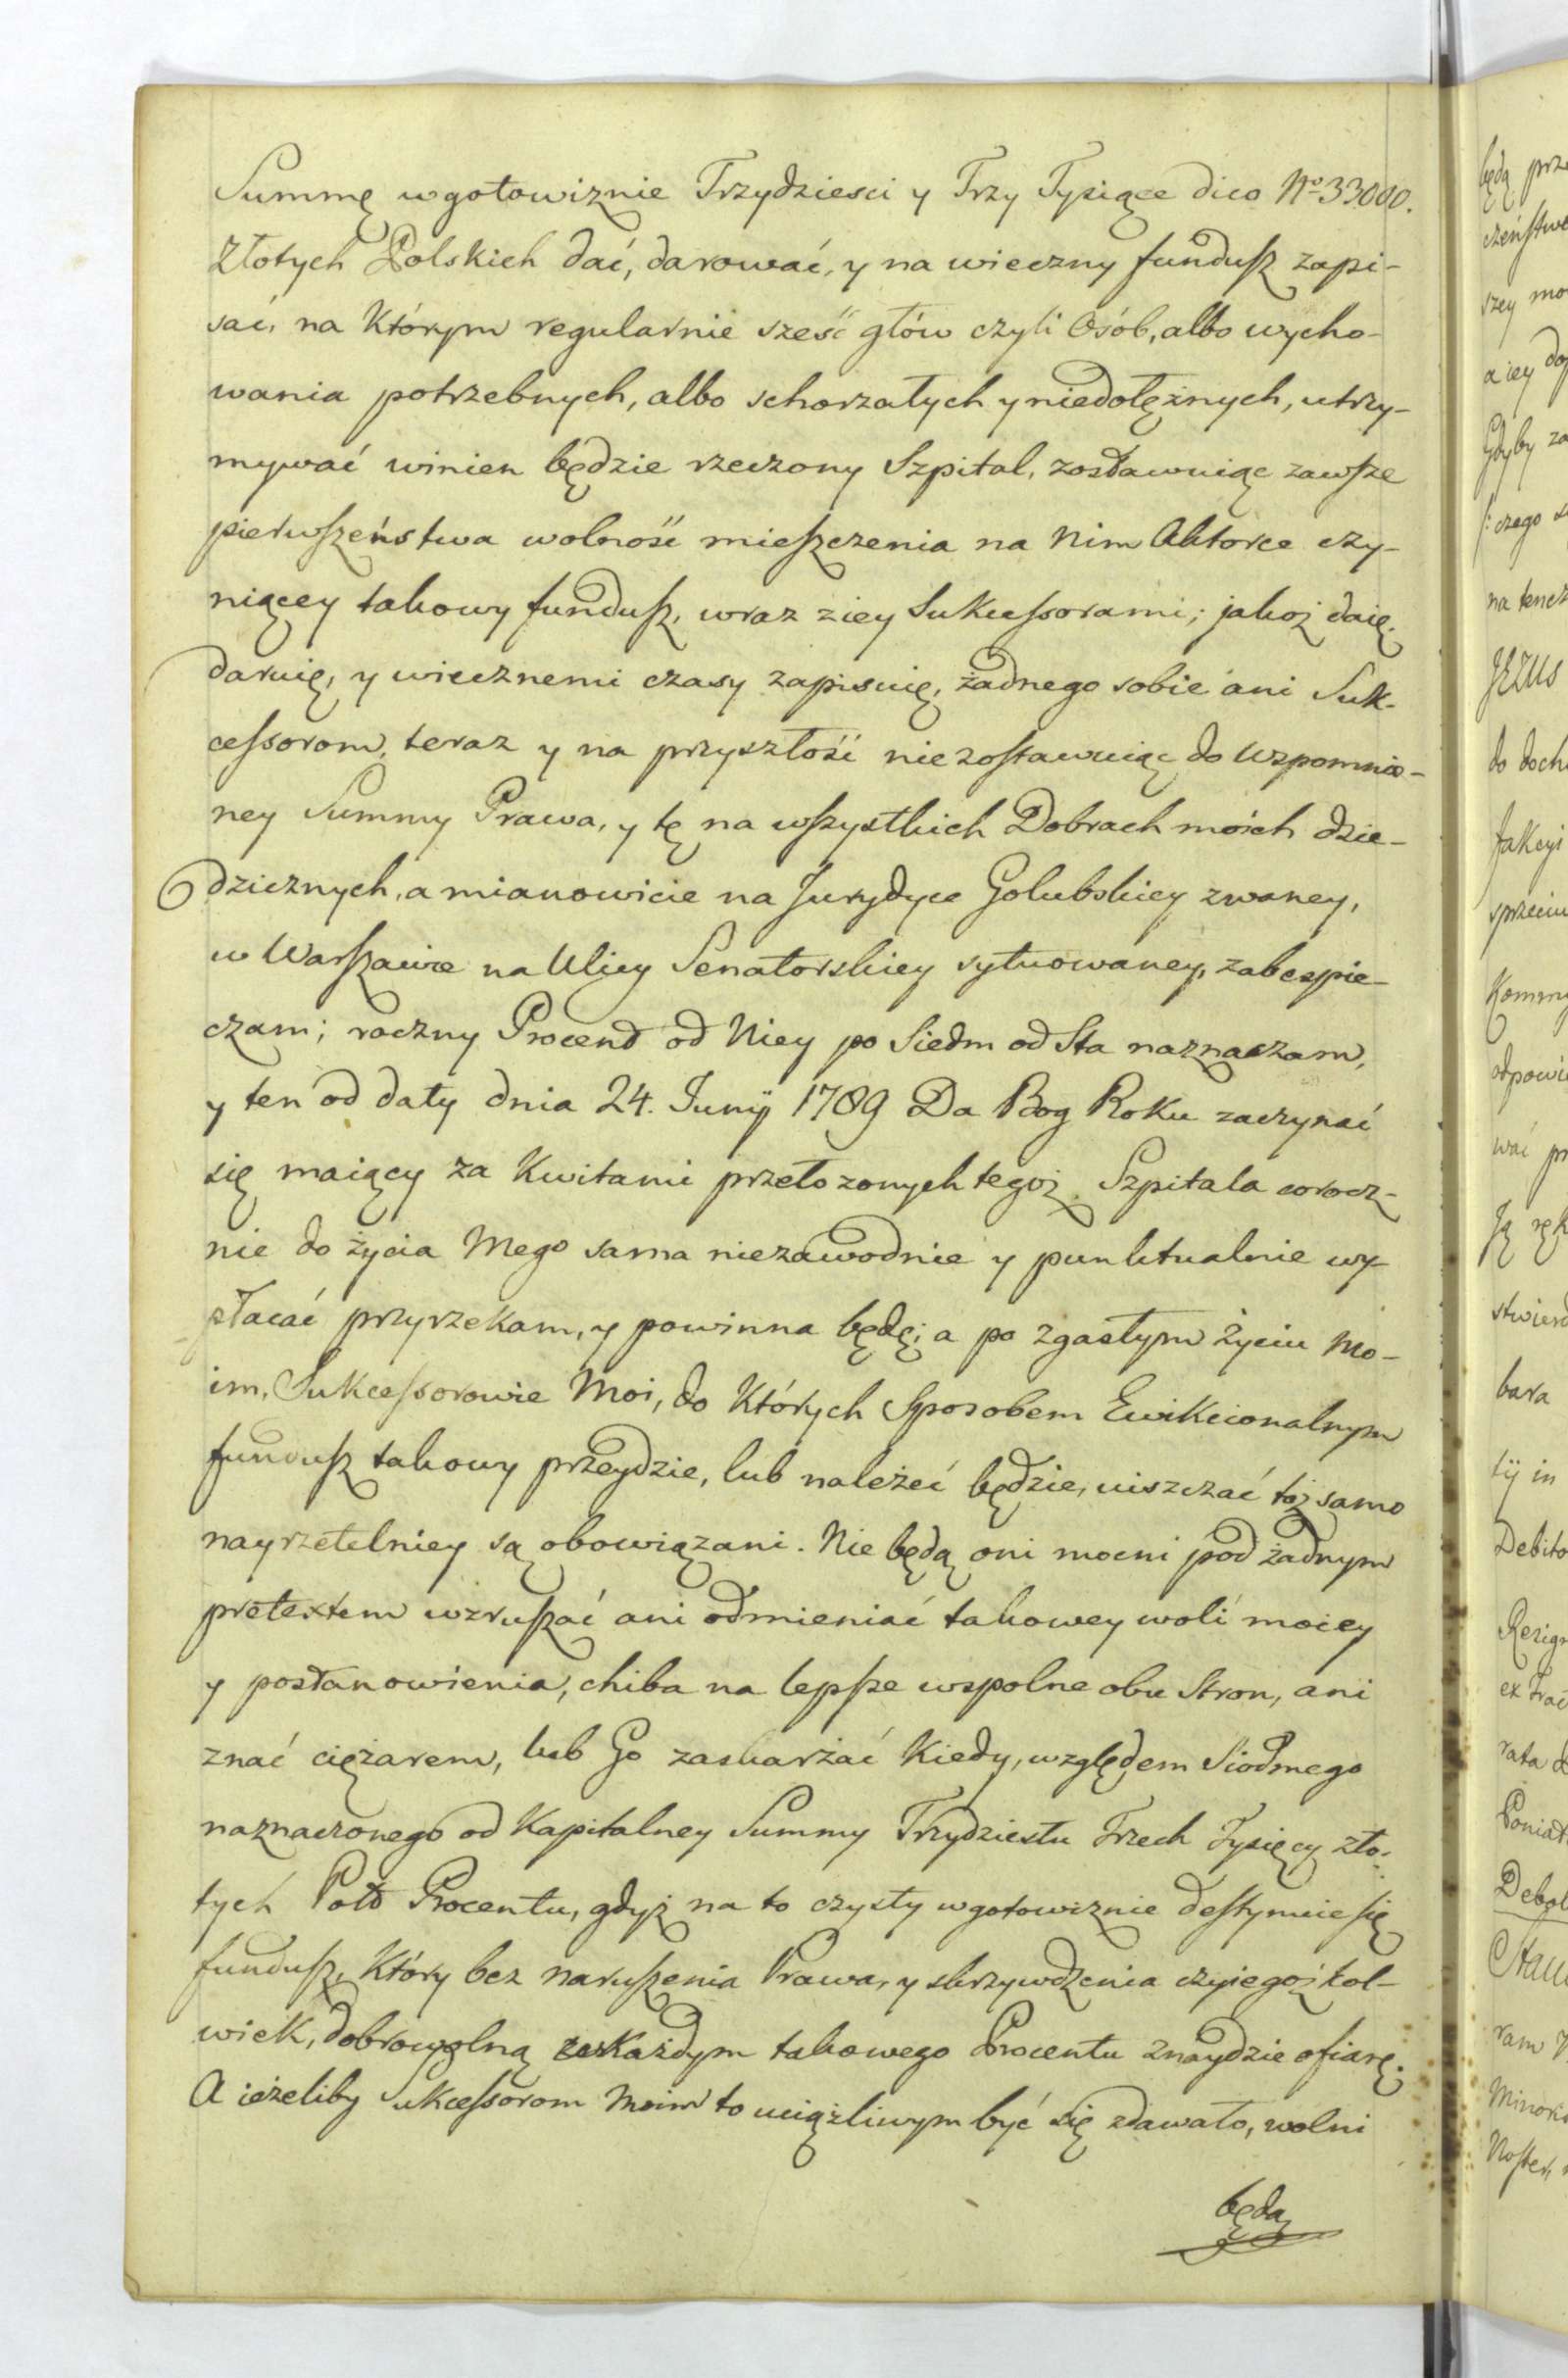 Summę w gotowiznie Trzydziesci y Trzy Tysiące dico No 33000.
Złotych Polskich dać, darować, y na wieczny fundusz zapi-
sać, na Którym regularnie sześć głów czyli Osób, albo wycho-
wania potrzebnych, albo schorzałych y niedołężnych, utrzy-
mywać winien będzie rzeczony Szpital, zostawuiąc zawsze
pierwszeństwa wolność mieszczenia na Nim Aktorce czy-
niącey takowy fundusz, wraz z iey Sukcessorami; jakoż daię,
daruię, y wiecznemi czasy zapisuię, żadnego sobie ani Suk-
cessorom, teraz y na przyszłość niezostawuiąc do Wzpomnio-
ney Summy Prawa, y tę na wszystkich Dobrach moich dzie-
dzicznych, a mianowicie na Jurydyce Golubskiey zwaney,
w Warszawie na Ulicy Senatorskiey sytuowaney, zabespie-
czam; roczny Procend od Niey po Siedm od Sta naznaczam,
y ten od daty dnia 24. Junij 1789 Da Bog Roku zaczynać
się maiący za Kwitami przełozonych tegoż Szpitala corocz-
nie do życia Mego sama niezawodnie y punktualnie wy-
płacać przyrzekam, y powinna będę; a po zgasłym życiu Mo-
im, Sukcessorowie Moi, do Których Sposobem Ewikcionalnym
fundusz takowy przeydzie, lub należeć będzie, uiszczać toż samo
nayrzetelniey są obowiązani. Nie będą oni mocni pod żadnym
pretextem wzruszać ani odmieniać takowey woli moiey
y postanowienia, chiba na lepsze wspolne obu Stron, ani
znać ciężarem, lub Go zaskarżać Kiedy, względem Siodmego
naznaczonego od Kapitalney Summy Trzydziestu Trzech Tysięcy zło-
tych Pold Procentu, gdyż na to czysty w gotowiznie destynuie się
fundusz, Który bez naruszenia Prawa, y skrzywdzenia czyiegożkol-
wiek, dobrowolną Każdym takowego Procentu znaydzie ofiarę.
A ieżeliby Sukcessorom Moim to uciążliwym być się zdawało, wolni
będą
będą
czeństw
szey
a iey
Gdyby
czego
na
JEZUS
do
fakcyi
bara
in
Ją
wać
ex
rata
ram